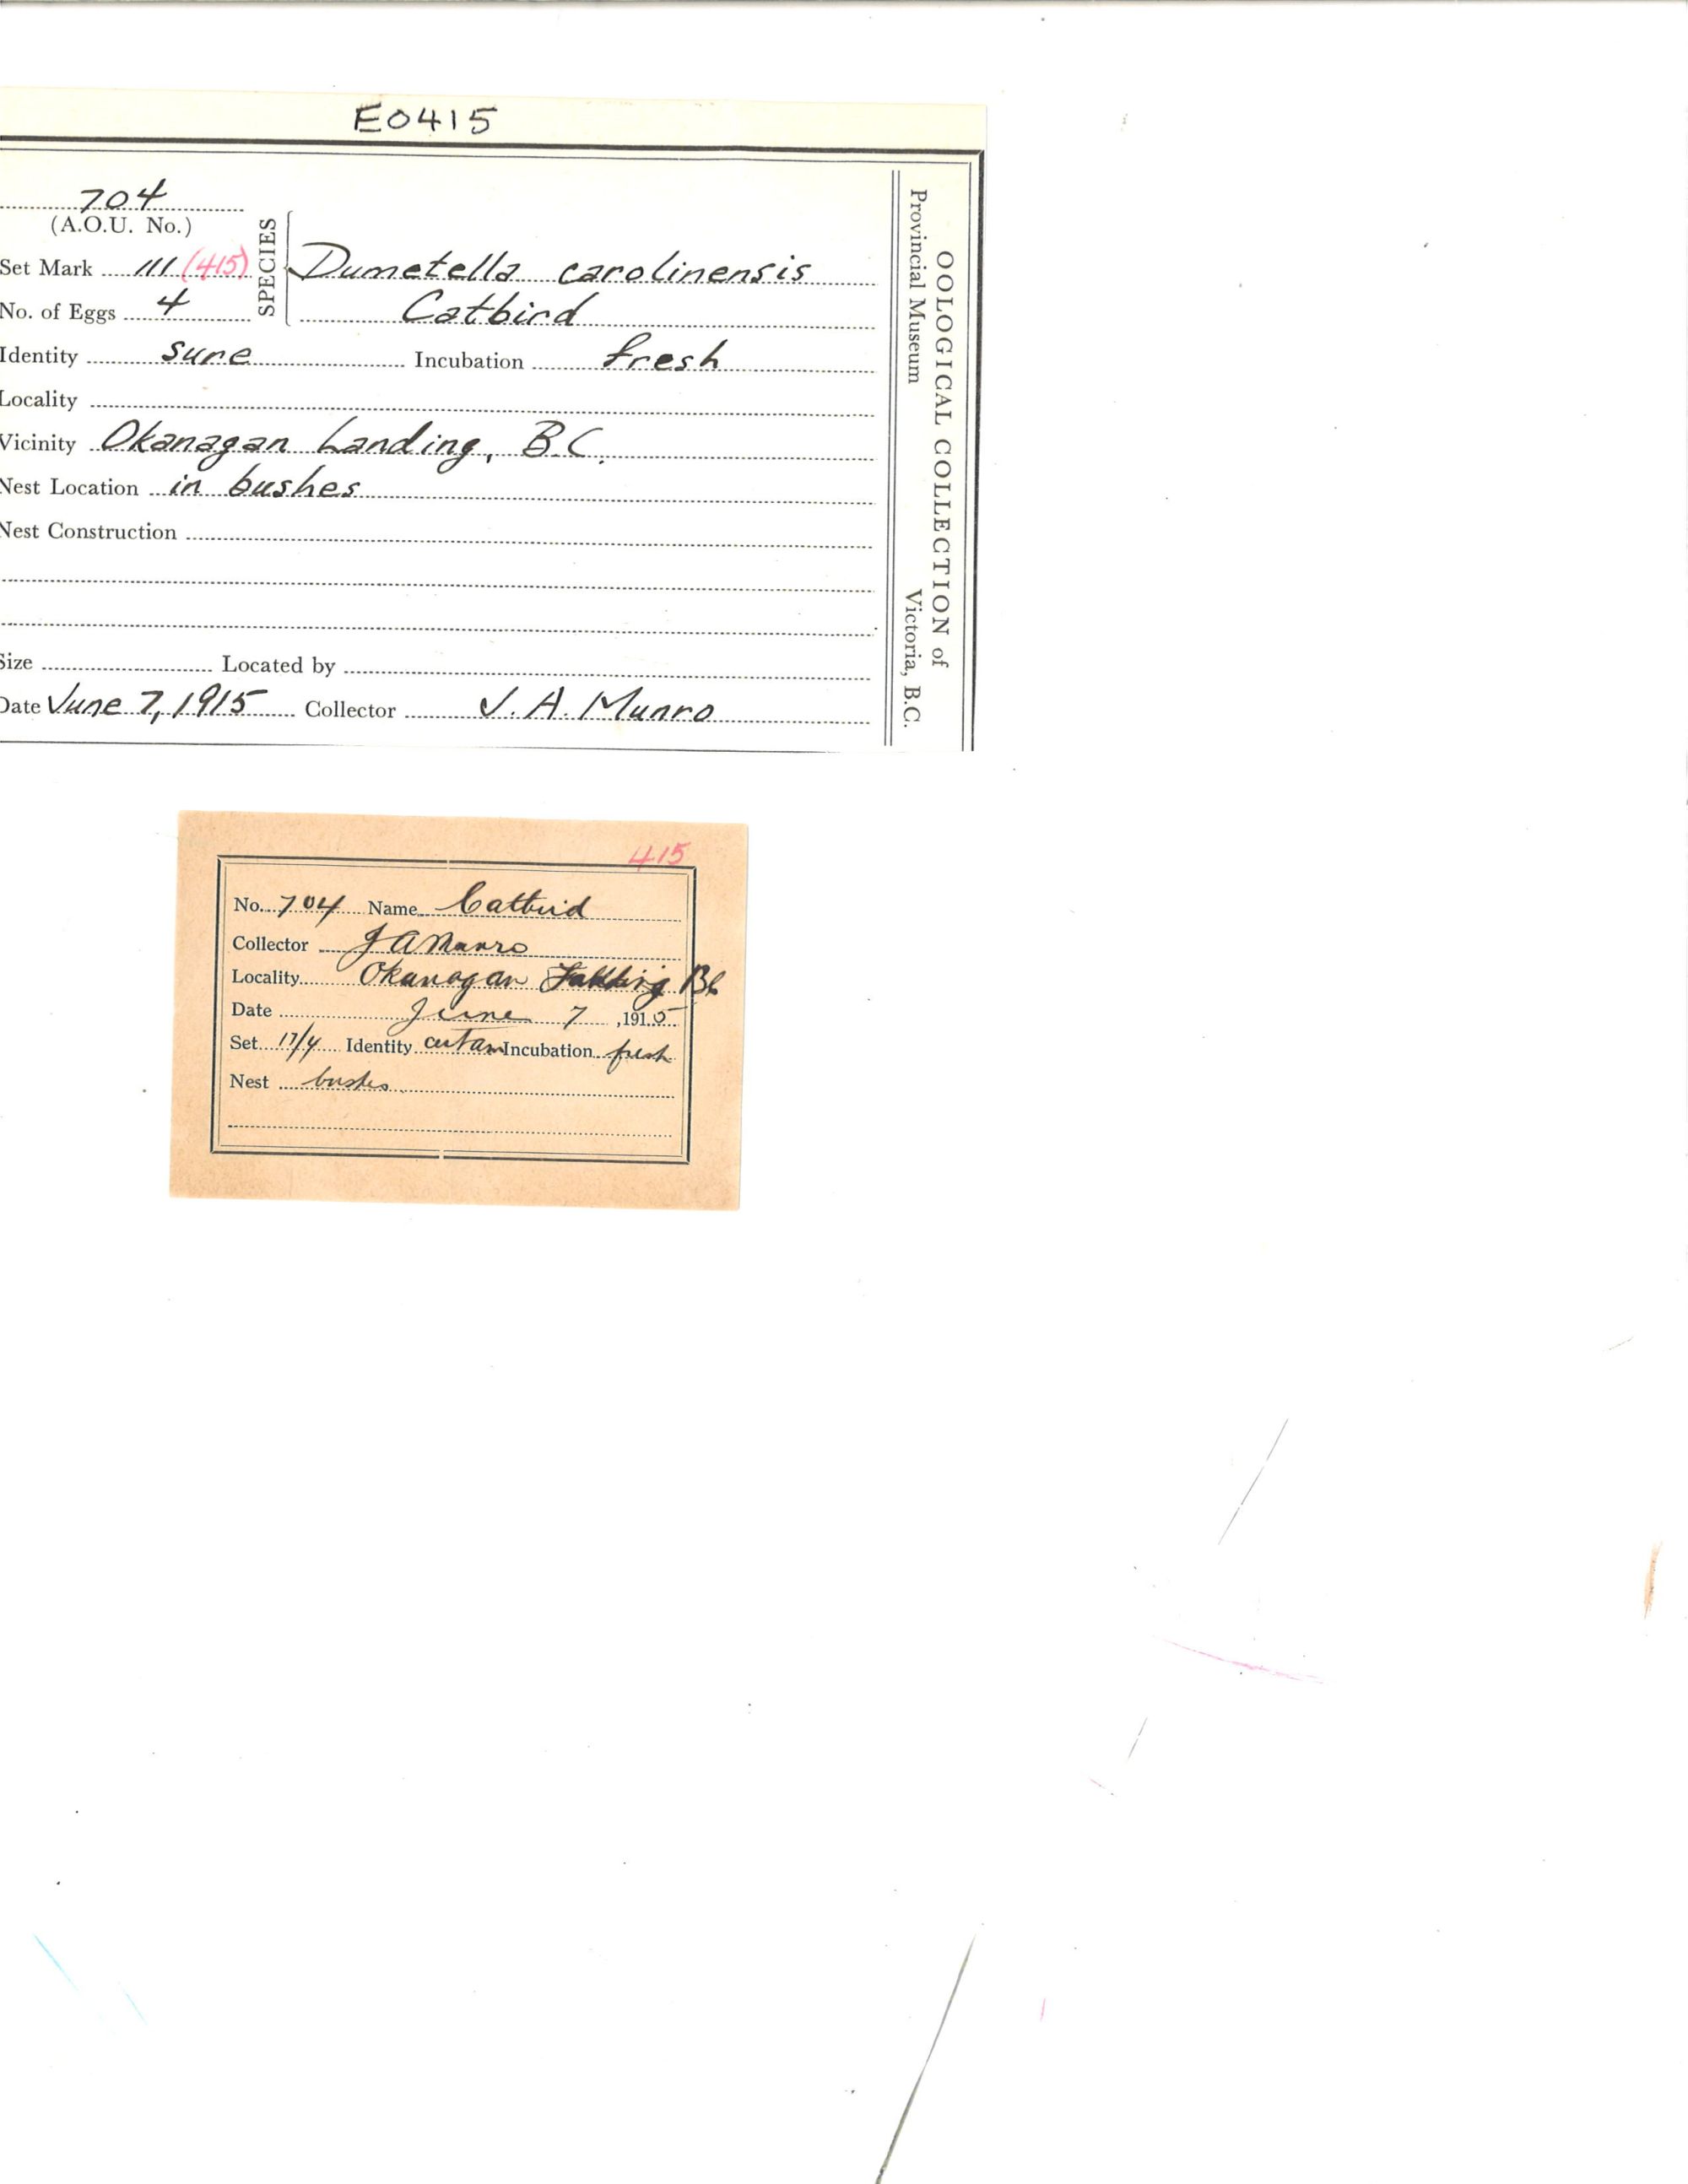 E0415
704
(A.O.U. No.)
Set Mark 111 (415)
No. of Eggs 4
SPECIES
Dumetella carolinensis
Catbird
Identity sure Incubation fresh
Locality
Vicinity Okanagan Landing, B.C.
Nest Location in bushes
Nest Construction
Size Located by
Date June 7, 1915 Collector J. A. Munro
OOLOGICAL COLLECTION of
Provincial Museum Victoria, B.C.
415
No. 704 Name Catbird
Collector J A Munro
Locality Okanagan BC
Date June 7, 1915
Set 17/4 Identity certain Incubation fresh
Nest bushes